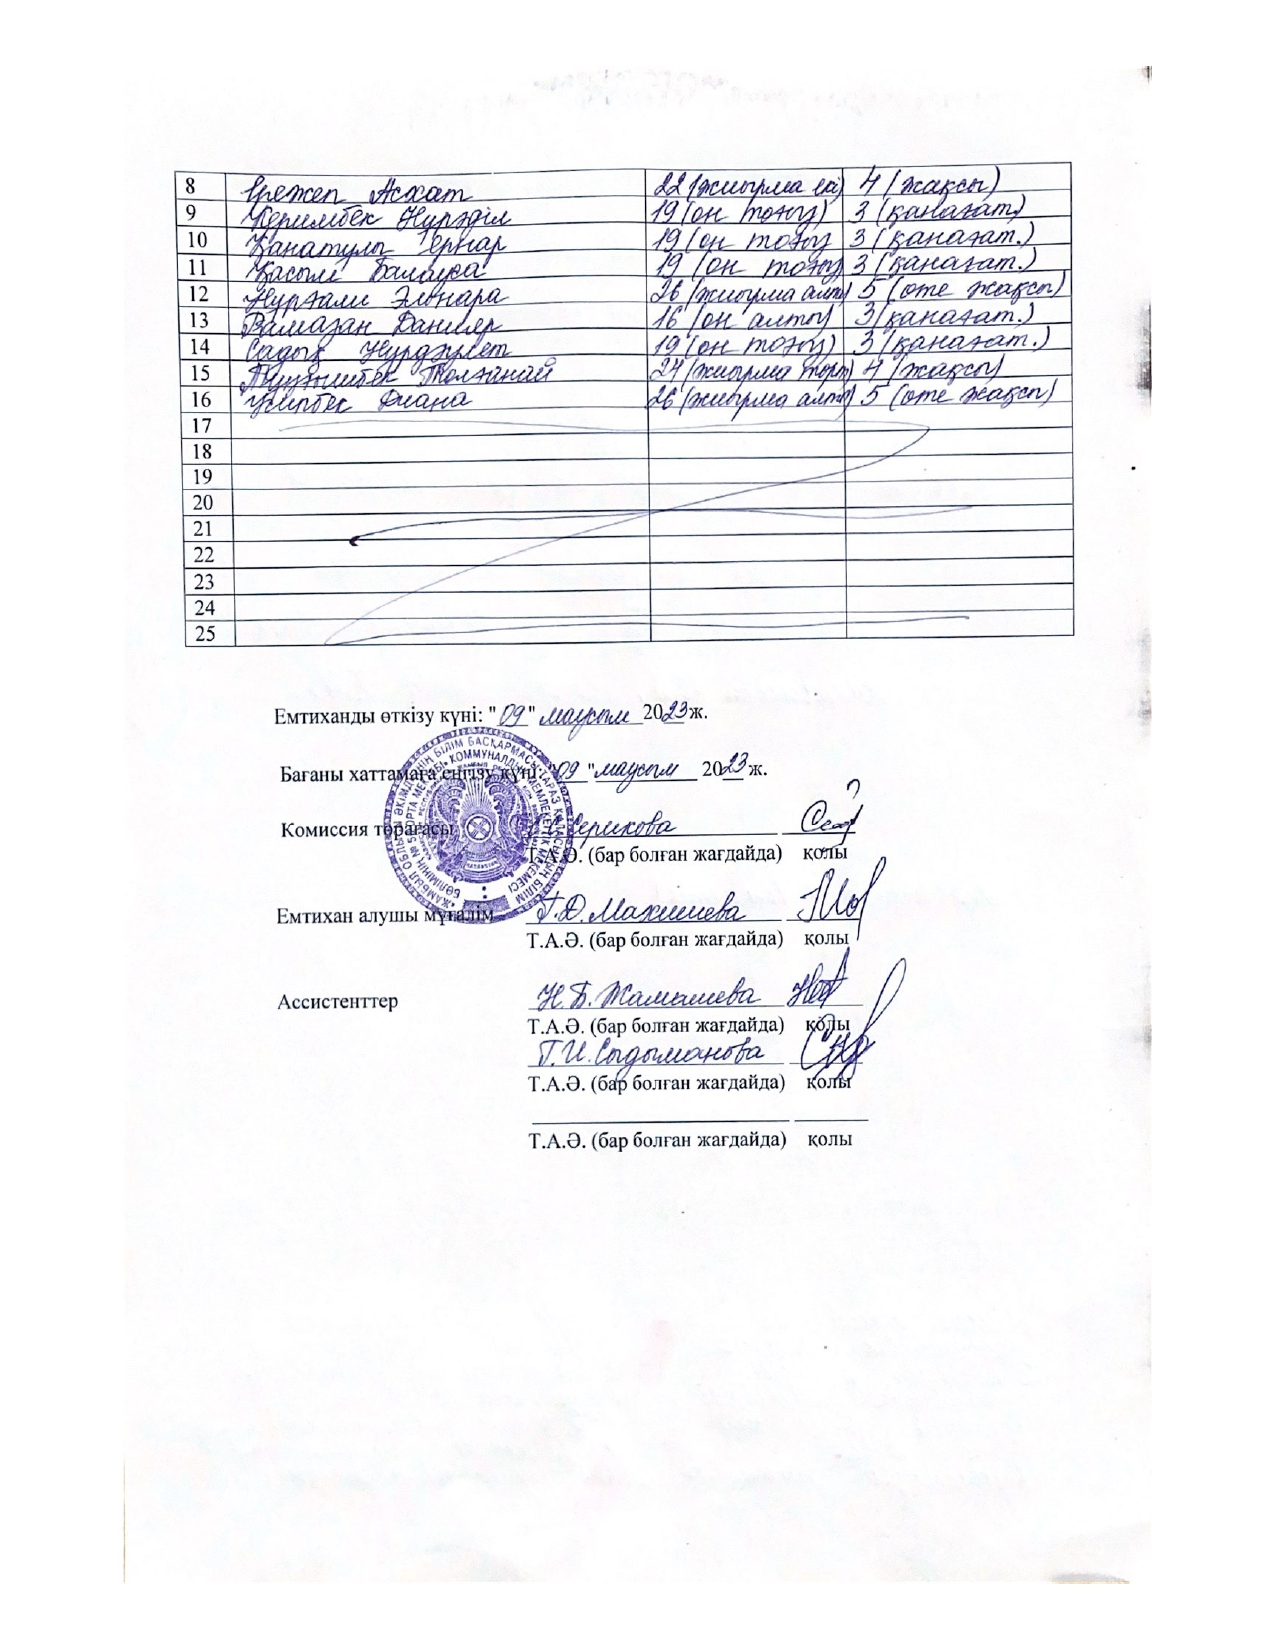 8 Ережеп Асхат 22 (жиырма екі) 4 (жақсы)
9 Керимбек Нұрәділ 19 (он тоғыз) 3 (қанағат)
10 Қанатұлы Ернар 19 (он тоғыз 3 (қанағат.)
11 Қасым Балауса 19 (он тоғыз 3 (қанағат.)
12 Нурғали Эльнара 26 (жиырма алты) 5 (өте жақсы)
13 Рамазан Данияр 16 (он алты) 3 (қанағат.)
14 Садық Нұрдәулет 19 (он тоғыз) 3 (қанағат.)
15 Толғанай 24 (жиырма төрт) 4 (жақсы)
16 Диана 26 (жиырма алты) 5 (өте жақсы)
17
18
19
20
21
22
23
24
25
Емтиханды өткізу күні: "09" маусым 2023 ж.
Бағаны хаттамаға енгізу күні: "09" маусым 2023 ж.
Комиссия төрағасы Серикова
Т.А.Ә. (бар болған жағдайда) қолы
Емтихан алушы мұғалім Г.Д. Махишева
Т.А.Ә. (бар болған жағдайда) қолы
Ассистенттер Н.Б. Жамашева
Т.А.Ә. (бар болған жағдайда) қолы
Г.И. Сыдыманова
Т.А.Ә. (бар болған жағдайда) қолы
Т.А.Ә. (бар болған жағдайда) қолы